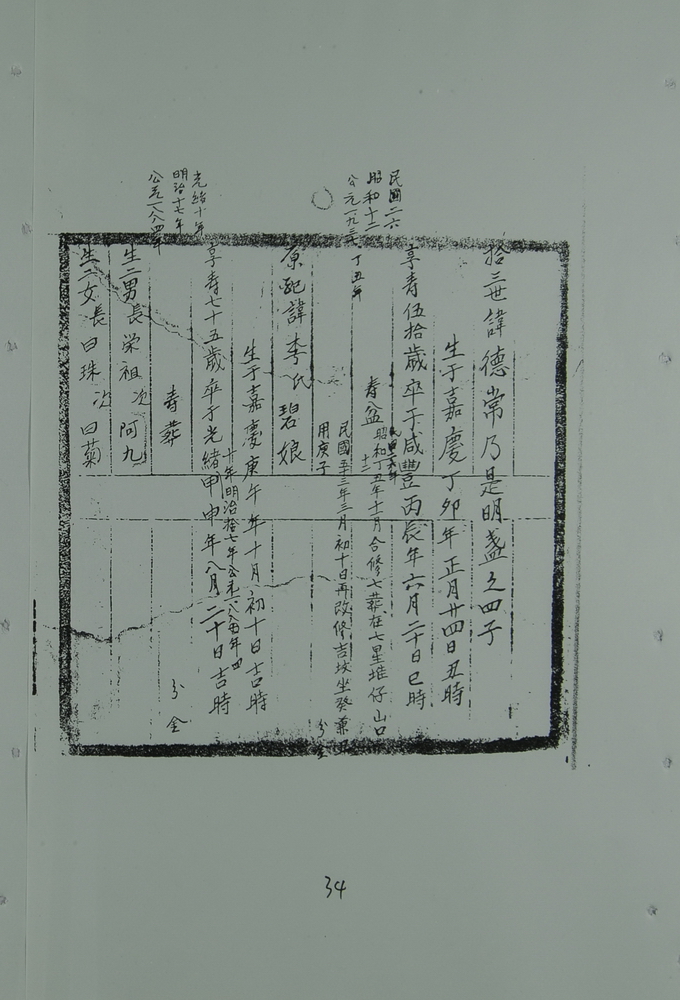 拾三世諱德常乃是明盞之四子
生于嘉慶丁卯年正月廿四日丑時
民國二六
享壽伍拾歲卒于咸豐丙辰年六月二十日巳時
昭和十二
公元一九三七
丁丑年
民國廿六年
壽盆昭和丁丑年十一月合修七葬在七里堆仔山口
十二
民國五十三年三月初十日再改修吉坟坐癸兼丑
用庚子
分金
原配諱李氏碧娘
生于嘉慶庚午年十月初十日吉時
十年明治拾七年公元一八八四年
光緒十年
享壽七十五歲卒于光緒甲申年八月二十日吉時
明治十七年
公元一八八四年
壽葬
分金
生二男長榮祖次阿九
生二女長曰珠次曰菊
34